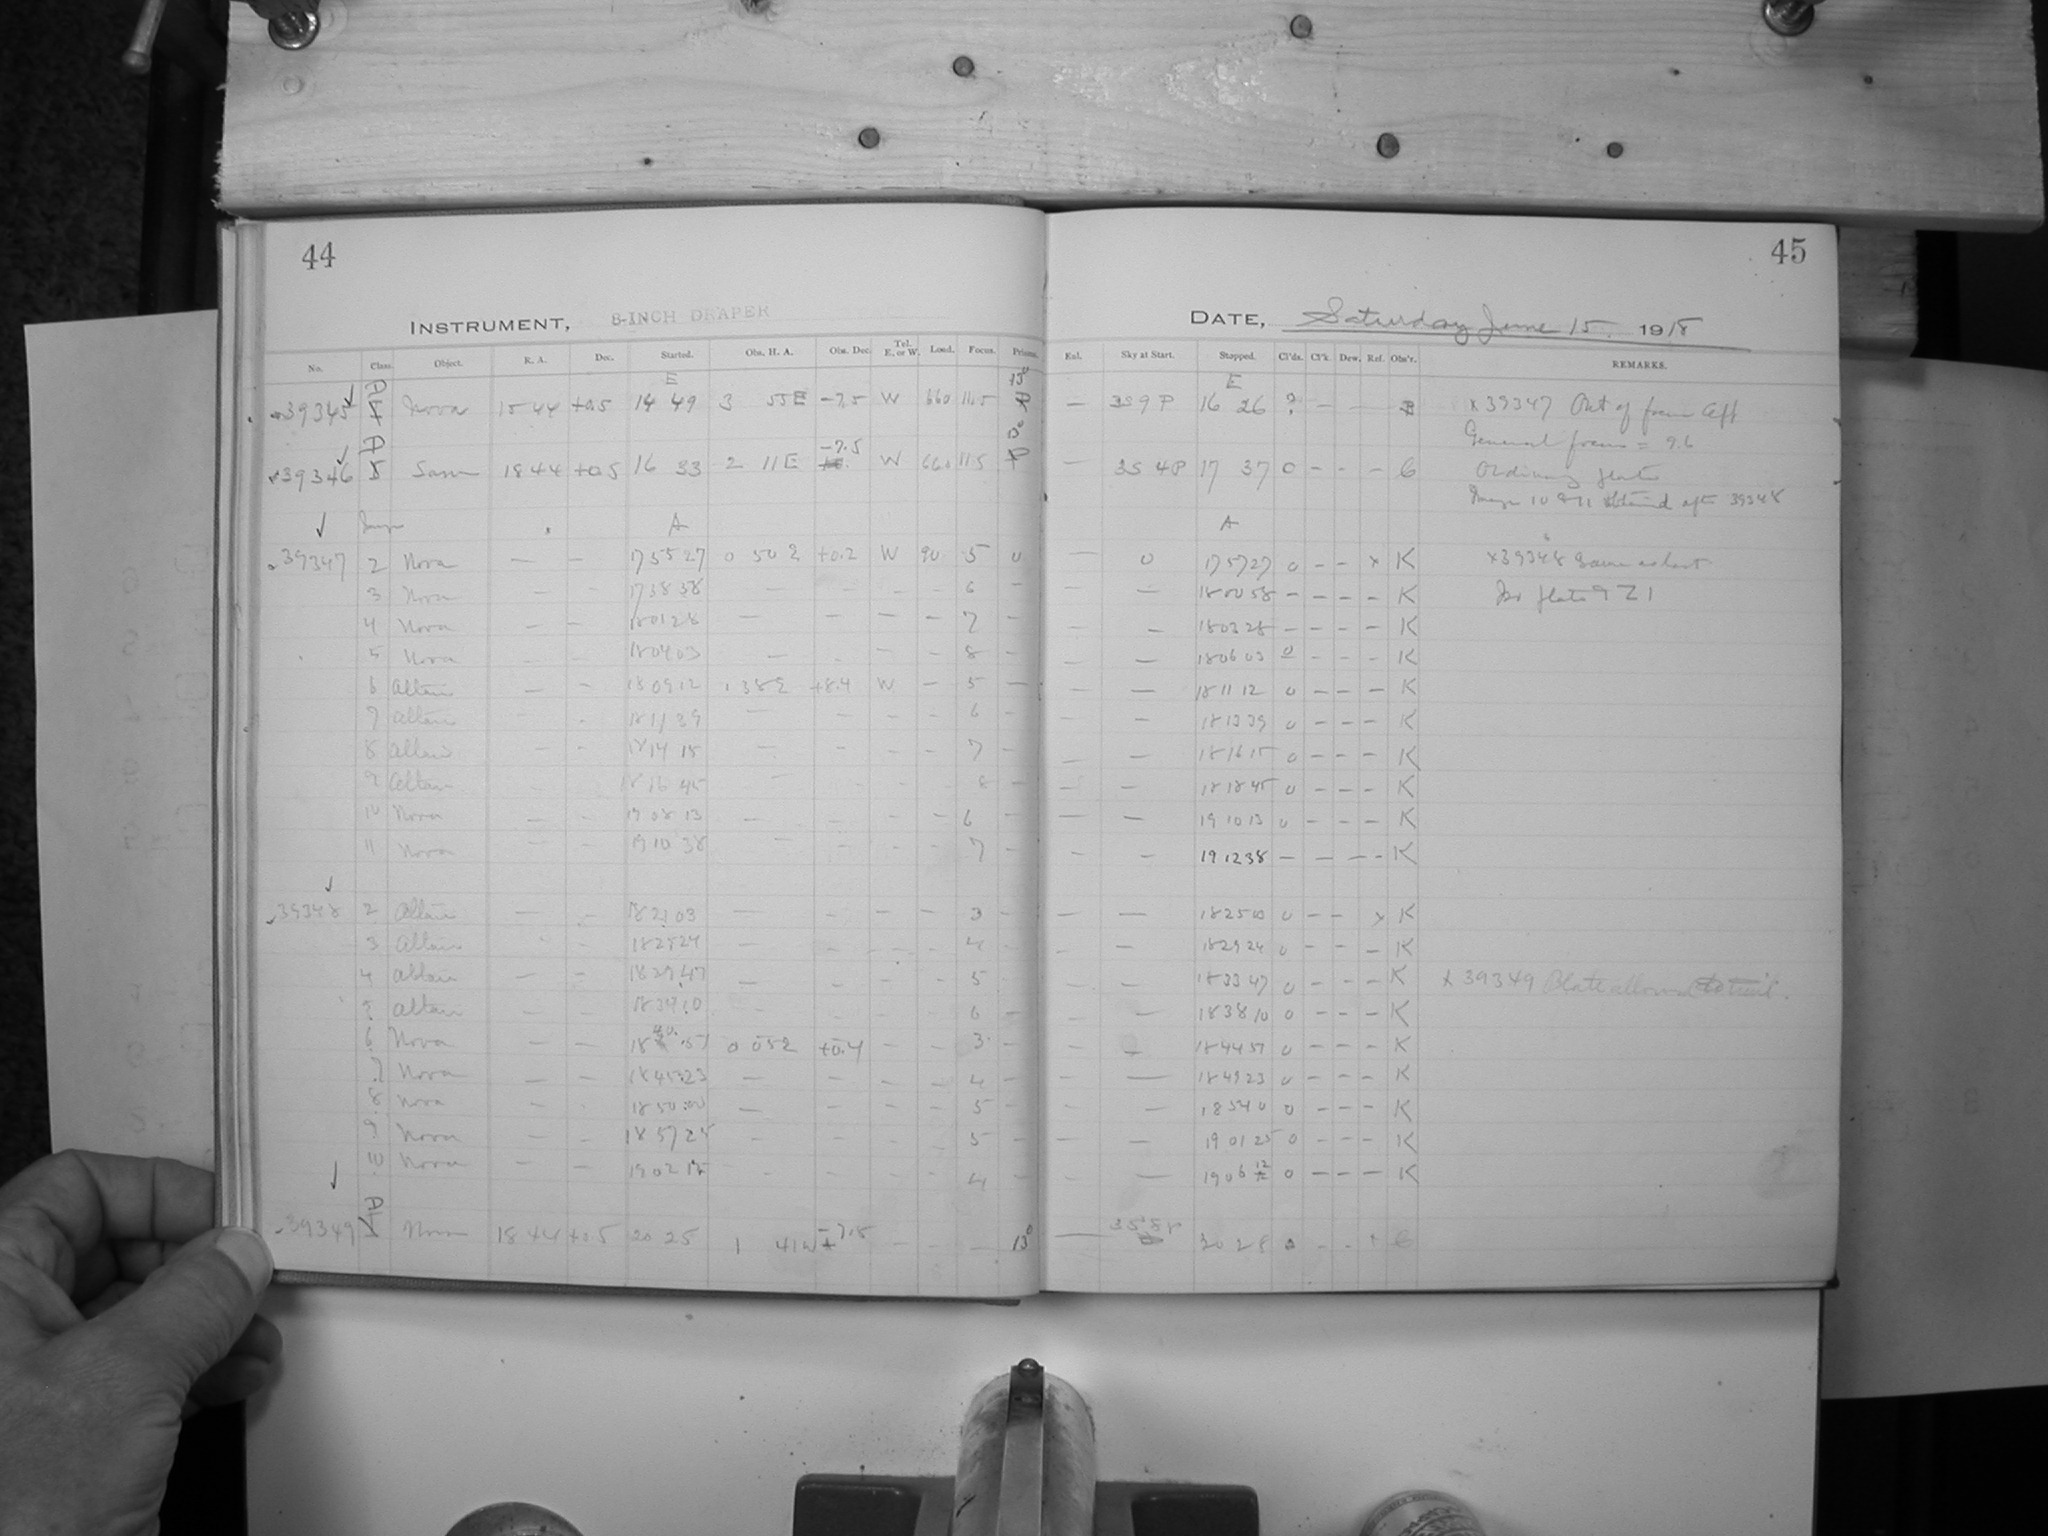 44
45
INSTRUMENT, 8-INCH DRAPER
DATE, Saturday June 15 1918
No. Class. Object. R. A. Dec. Started. Obs. H. A. Obs. Dec. Tel. E. or W. Load. Focus. Prisms. Exl. Sky at Start. Stopped. Cl'ds. Cl'k. Dew. Ref. Obs'r. REMARKS.
E E
39345 Nova +0.5 14 49 3 55 E -7.5 W 660 11.5 — 16 26 ? - × 39347 Out of focus
General focus = 9.6
39346 Same 18 44 +0.5 16 33 2 11 E -7.5 W 660 11.5 — 35 4P 17 37 0 - - - G Ordinary plate
Image 10 & 11 obtained after 39348
A A
39347 2 Nova — — 17 55 27 0 50 E +0.2 W 90 5 0 — 0 17 57 27 0 - - × K × 39348 Same as last
3 Nova - - 6 - — 18 00 58 - - - - K
4 Nova - - 18 01 28 7 - — 18 03 28 - - - - K
5 Nova 18 04 03 8 - — 18 06 03 0 - - - K
6 Altair - - 18 09 12 1 38 E +8.4 W - 5 — 18 11 12 0 - - - K
7 Altair 18 11 39 6 — 18 13 39 0 - - - K
8 Altair - - 18 14 15 7 - — 18 16 15 0 - - - K
9 Altair 18 16 45 8 - — 18 18 45 0 - - - K
10 Nova - - 19 08 13 6 — 19 10 13 0 - - - K
11 Nova - - 19 10 38 7 - — 19 12 38 - - - - K
39348 2 Altair — - 3 — 18 25 03 0 - - × K
3 Altair - 18 25 24 4 — 18 29 24 0 - - - K
4 Altair - - 18 29 47 5 — 18 33 47 0 - - - K × 39349 Plate allowed to trail.
5 Altair 18 34 10 6 — 18 38 10 0 - - - K
6 Nova - - 18 40 57 0 05 E +0.4 - - 3 18 44 57 0 - - - K
7 Nova - - 18 45 23 4 - — 18 49 23 0 - - - K
8 Nova - - 18 50 00 5 - — 18 54 0 0 - - - K
9 Nova - - 18 57 25 5 - — 19 01 25 0 - - - K
10 Nova - - 19 02 12 4 - — 19 06 12 0 - - - K
39349 Nova 18 44 +0.5 20 25 1 41 W -7.5 - - - 13° — 20 28